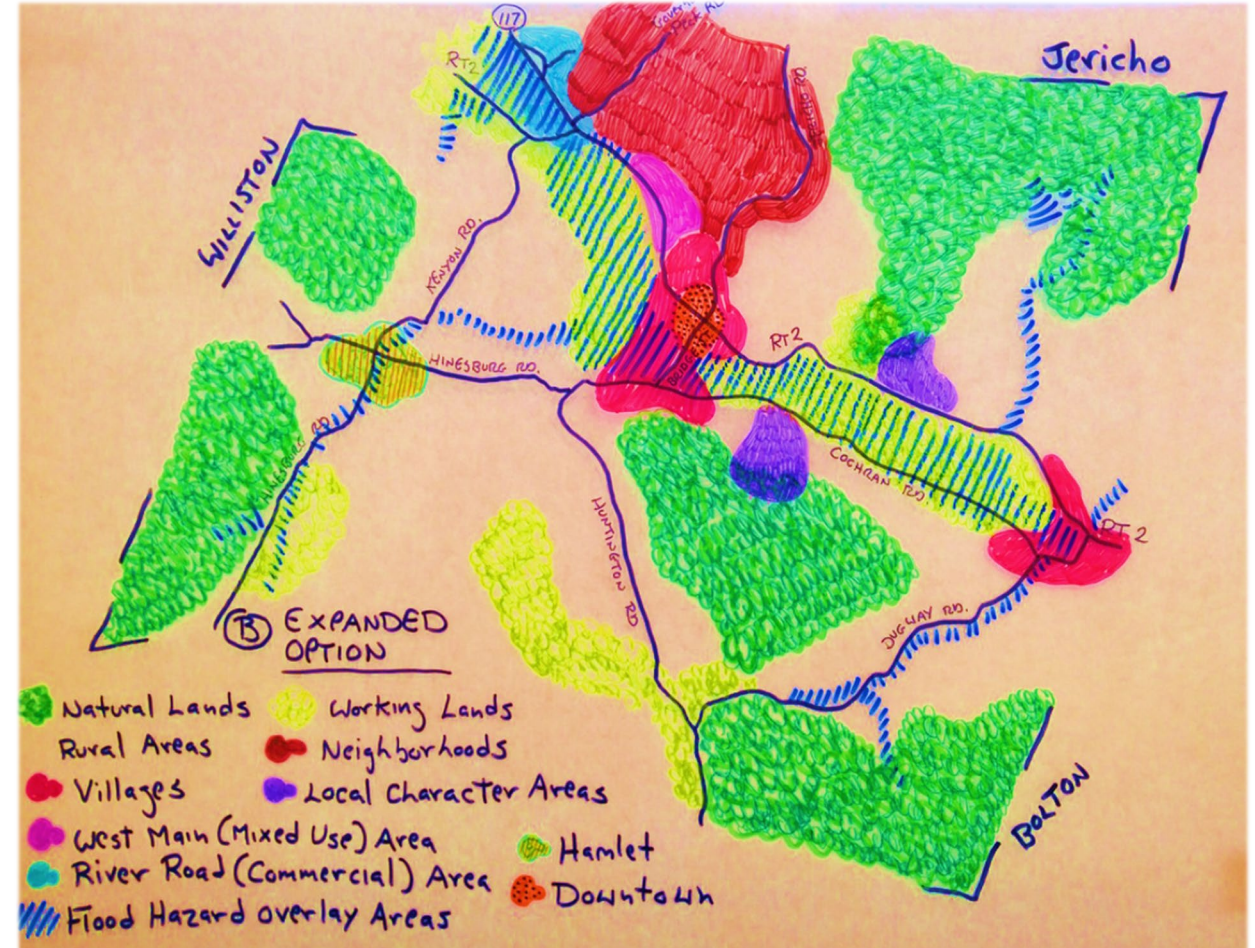 117
RT2
Jericho
WILLISTON
KENYON RD.
RT2
HINESBURG RD.
BRIDGE
HINESBURG RD
COCHRAN RD
HUNTINGTON RD
RT 2
DUGWAY RD.
B EXPANDED
OPTION
Natural Lands
Working Lands
Rural Areas
Neighborhoods
Villages
Local Character Areas
West Main (Mixed Use) Area
Hamlet
River Road (Commercial) Area
Downtown
Flood Hazard overlay Areas
BOLTON